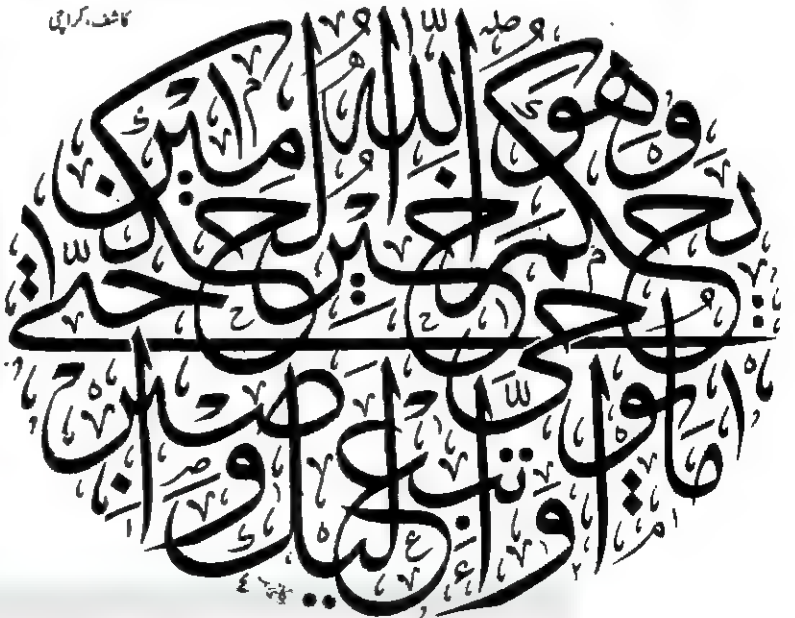 کاشف، کراچی
واتبع ما يوحى اليك واصبر
حتى يحكم الله وهو خير الحكمين